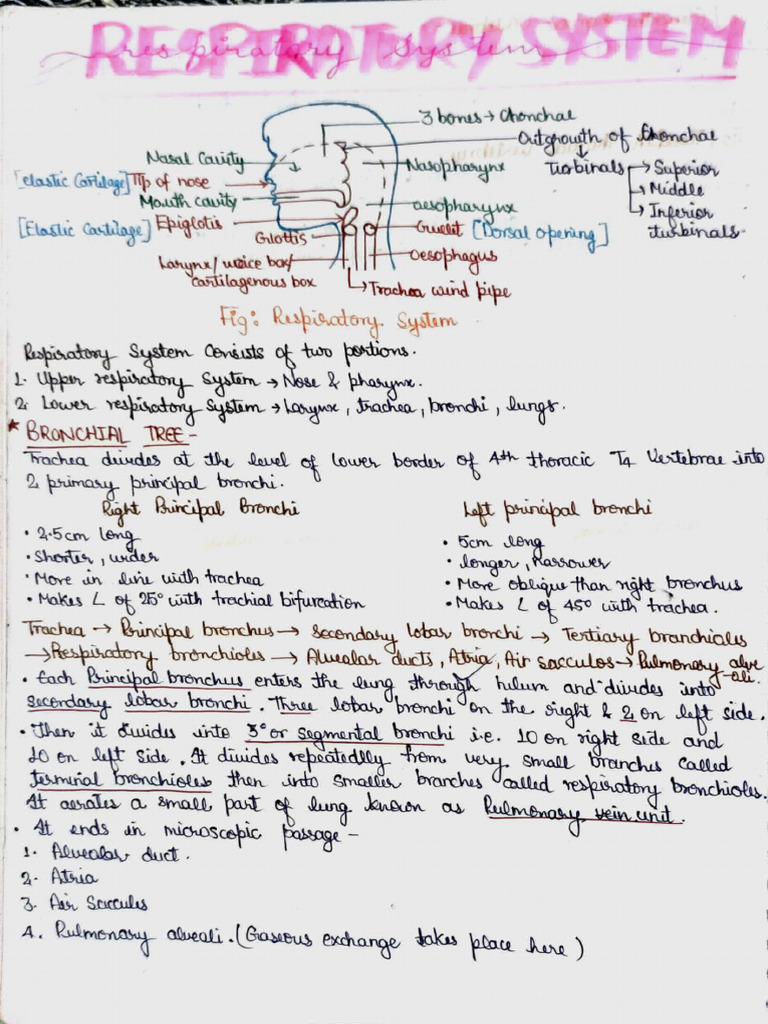 RESPIRATORY SYSTEM
respiratory system
3 bones → Chonchae
Outgrowth of Chonchae
↓
Turbinals → Superior
→ Middle
→ Inferior
turbinals
Nasal Cavity
Nasopharynx
[elastic Cartilage] Tip of nose
Mouth cavity
oesopharynx
[Elastic Cartilage] Epiglotis
Gullit [Dorsal opening]
Glottis
Larynx/ voice box/
cartilagenous box
oesophagus
Trachea wind pipe
Fig: Respiratory System
Respiratory System Consists of two portions.
1. Upper respiratory System → Nose & pharynx.
2. Lower respiratory System → Larynx, trachea, bronchi, lungs.
* BRONCHIAL TREE -
Trachea divides at the level of lower border of 4th thoracic T4 Vertebrae into
2 primary principal bronchi.
Right Principal Bronchi
• 2.5cm long
• Shorter, wider
• More in line with trachea
• Makes ∠ of 25° with trachial bifurcation
Left principal bronchi
• 5cm long
• longer, Narrower
• More oblique than right bronchus
• Makes ∠ of 45° with trachea.
Trachea → Principal bronchus → secondary lobar bronchi → Tertiary branchioles
→ Respiratory bronchioles → Alvealar ducts, Atria, Air sacculos → Pulmonary alve
oli.
• Each Principal bronchus enters the lung through hilum and divides into
secondary lobar bronchi. Three lobar bronchi on the right & 2 on left side.
• Then it divides into 3° or segmental bronchi i.e. 10 on right side and
10 on left side. It divides repeatedlly from very small branches called
terminal bronchioles then into smaller branches called respiratory bronchioles.
It aerates a small part of lung known as Pulmonary vein unit.
• It ends in microscopic passage -
1. Alvealar duct.
2. Atria
3. Air Saccules
4. Pulmonary alveali. (Gaseous exchange takes place here)